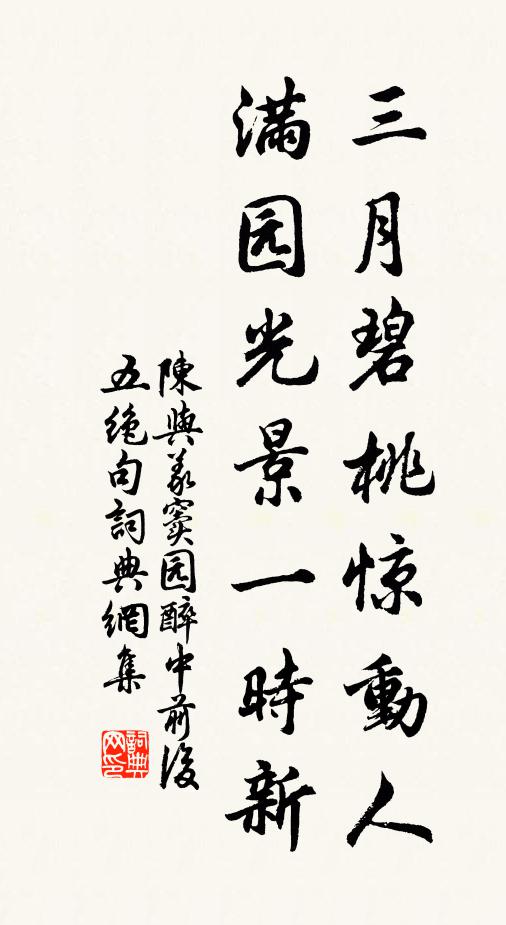 三月碧桃惊動人
满园光景一時新
陳與義窦园醉中前後
五绝句詞典網集
詞典
网印